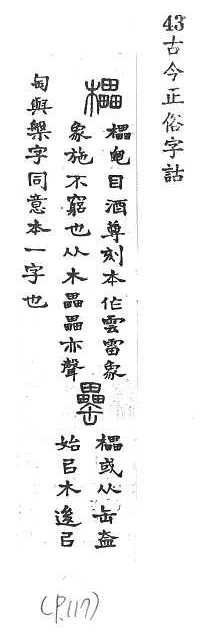 43 古今正俗字詁
櫑
櫑龜目酒尊刻木作雲雷象
象施不窮也从木畾畾亦聲
罍
櫑或从缶盇
始㠯木後㠯
匋與槃字同意本一字也
(P.117)